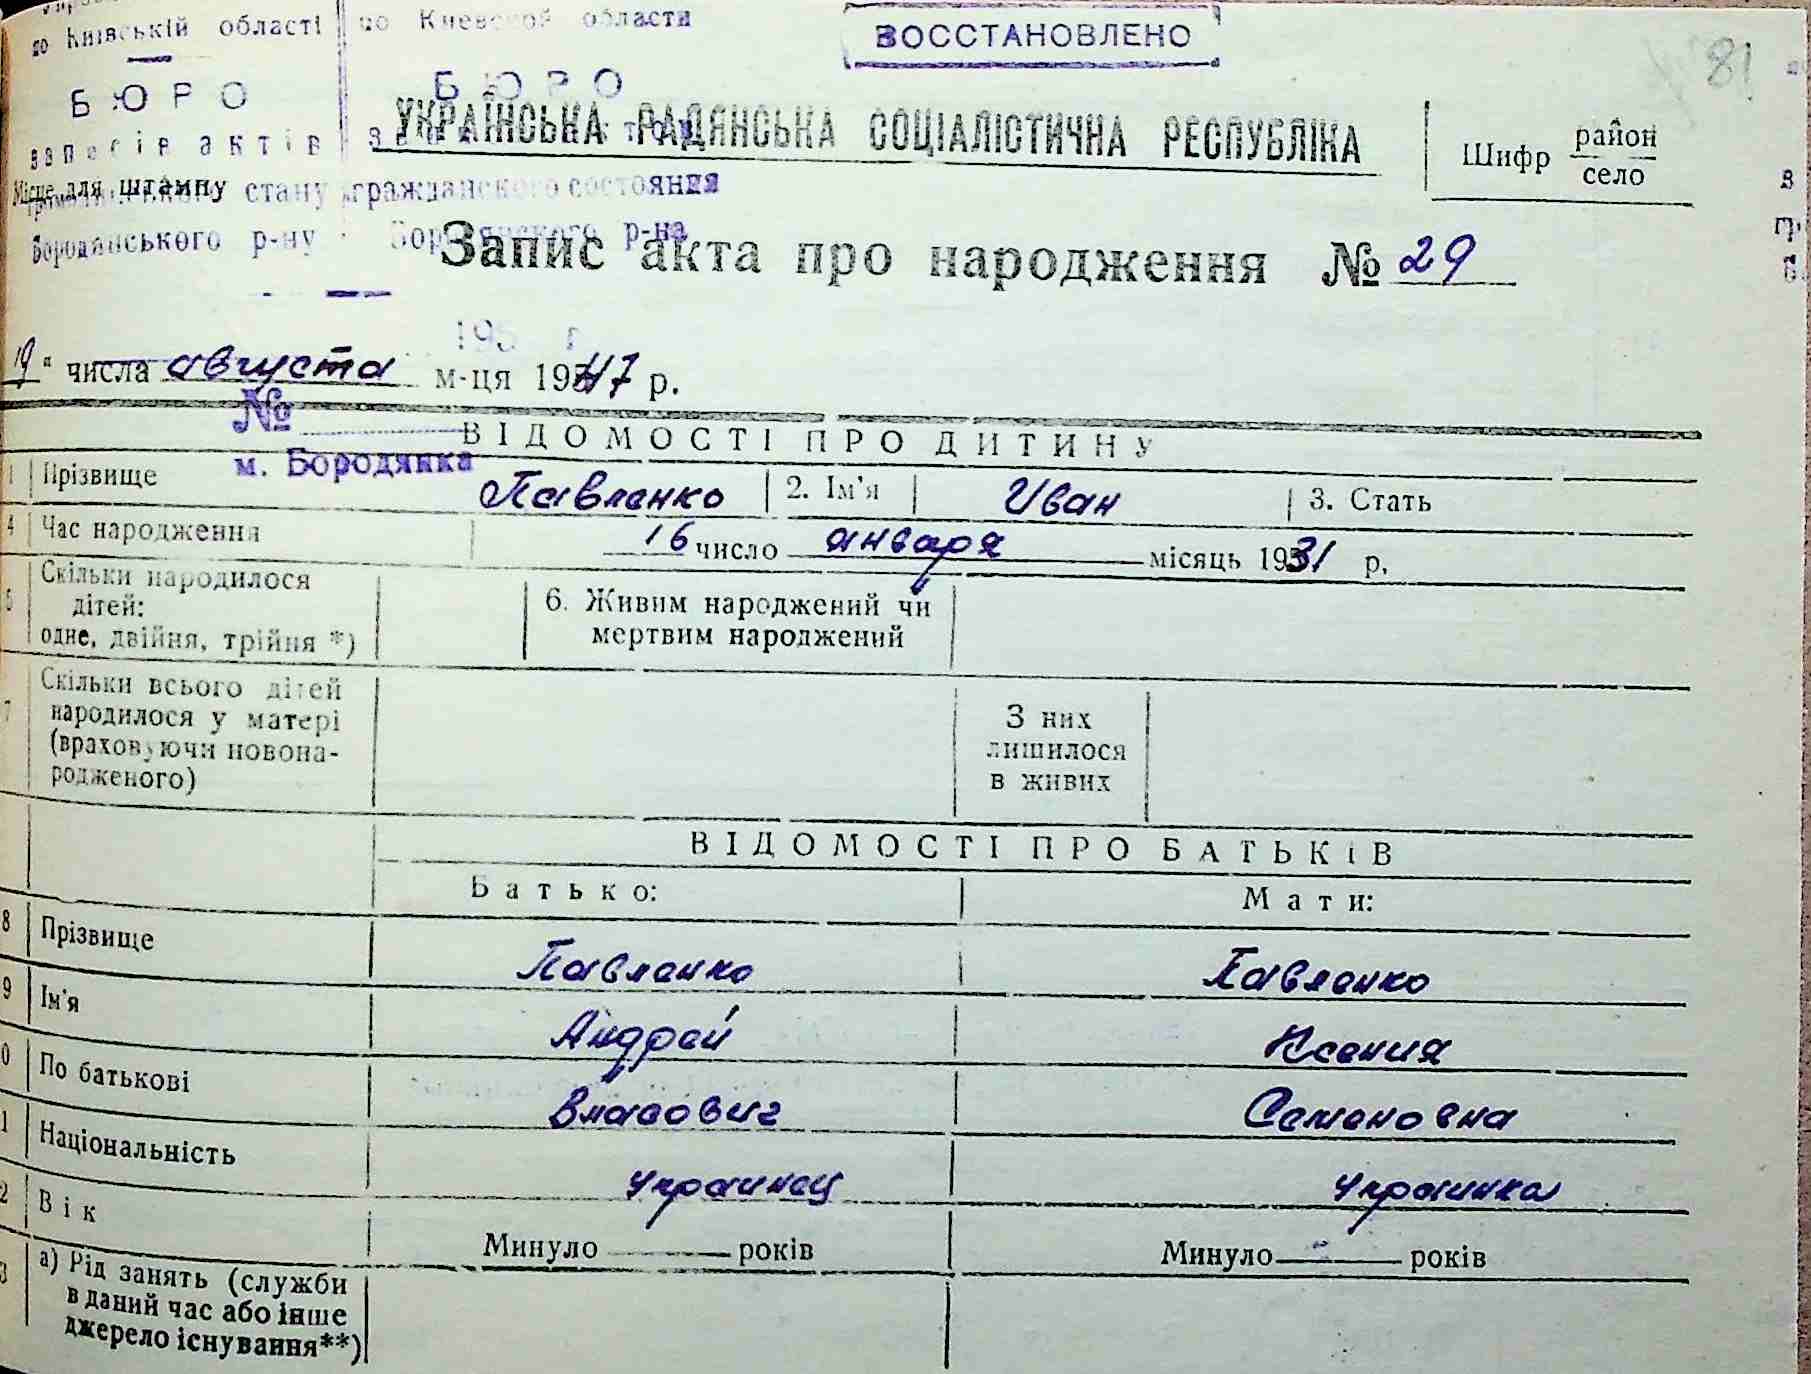 по Київській області по Киевской области
ВОССТАНОВЛЕНО
81
БЮРО БЮРО
УКРАЇНСЬКА РАДЯНСЬКА СОЦІАЛІСТИЧНА РЕСПУБЛІКА
записів актів
Шифр район
село
Місце для штампу
стану гражданского состояния
Бородянського р-ну Бородянского р-на
Запис акта про народження № 29
195 г.
19 " числа августа м-ця 1947 р.
№
ВІДОМОСТІ ПРО ДИТИНУ
м. Бородянка
1 Прізвище Павленко 2. Ім'я Иван 3. Стать
4 Час народження 16 число января місяць 1931 р.
5 Скільки народилося
дітей:
одне, двійня, трійня *)
6. Живим народжений чи
мертвим народжений
7 Скільки всього дітей
народилося у матері
(враховуючи новона-
родженого)
З них
лишилося
в живих
ВІДОМОСТІ ПРО БАТЬКІВ
Батько: Мати:
8 Прізвище Павленко Павленко
9 Ім'я Андрей Ксения
0 По батькові Власович Семеновна
1 Національність украинец украинка
2 Вік Минуло — років Минуло — років
3 а) Рід занять (служби
в даний час або інше
джерело існування**)